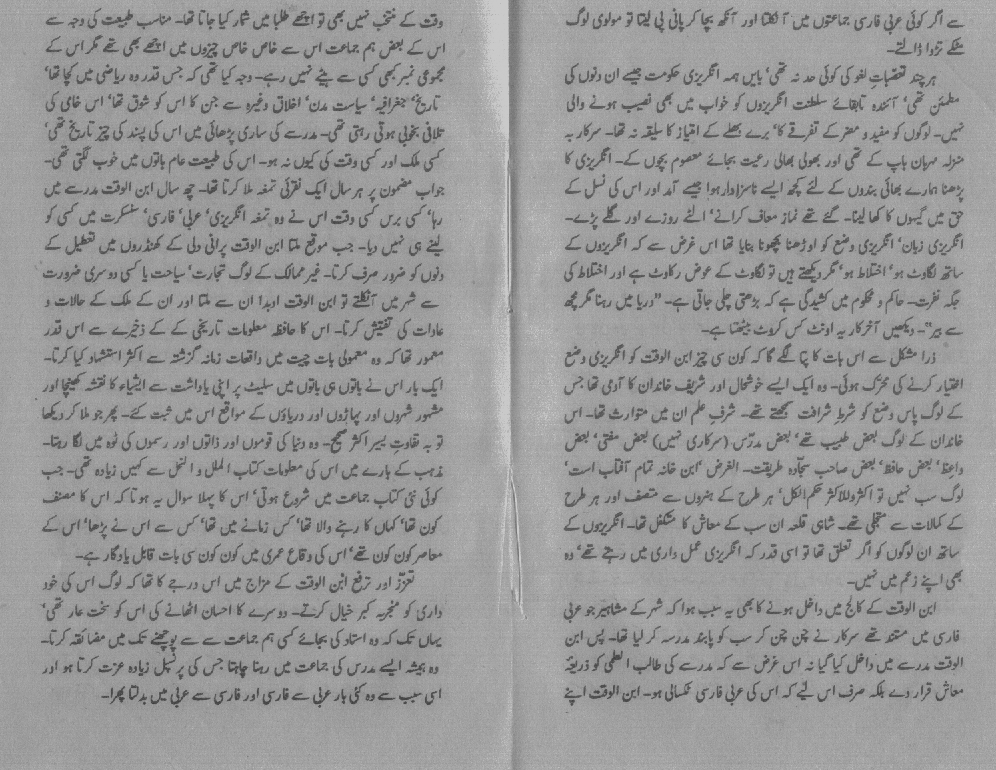 سے اگر کوئی عربی فارسی جماعتوں میں آنکلتا اور آنکھ بچا کر پانی پی لیتا تو مولوی لوگ
مٹکے تڑوا ڈالتے۔
ہرچند تعصبات لغو کی کوئی حد نہ تھی‘ بایں ہمہ انگریزی حکومت جیسے ان دنوں کی
مطمئن تھی‘ آئندہ تابقائے سلطنت انگریزوں کو خواب میں بھی نصیب ہونے والی
نہیں۔ لوگوں کو مفید و مضر کے تفرقے کا‘ برے بھلے کے امتیاز کا سلیقہ نہ تھا۔ سرکار بہ
منزلہ مہربان باپ کے تھی اور بھولی بھالی رعیت بجائے معصوم بچوں کے۔ انگریزی کا
پڑھنا ہمارے بھائی بندوں کے لئے کچھ ایسے ناسزاوار ہوا جیسے آدم اور اس کی نسل کے
حق میں گیہوں کا کھا لینا۔ گئے تھے نماز معاف کرانے‘ الٹے روزے اور گلے پڑے۔
انگریزی زبان‘ انگریزی وضع کو اوڑھنا بچھونا بنایا تھا اس غرض سے کہ انگریزوں کے
ساتھ لگاوٹ ہو‘ اختلاط ہو‘ مگر دیکھتے ہیں تو لگاوٹ کے عوض رکاوٹ ہے اور اختلاط کی
جگہ نفرت۔ حاکم و محکوم میں کشیدگی ہے کہ بڑھتی چلی جاتی ہے۔ "دریا میں رہنا مگرمچھ
سے بیر"۔ دیکھیں آخرکار یہ اونٹ کس کروٹ بیٹھتا ہے۔
ذرا مشکل سے اس بات کا پتا لگے گا کہ کون سی چیز ابن الوقت کو انگریزی وضع
اختیار کرنے کی محرک ہوئی۔ وہ ایک ایسے خوشحال اور شریف خاندان کا آدمی تھا جس
کے لوگ پاس وضع کو شرطِ شرافت سمجھتے تھے۔ شرفِ علم ان میں متوارث تھا۔ اس
خاندان کے لوگ بعض طبیب تھے‘ بعض مدرّس (سرکاری نہیں) بعض مفتی‘ بعض
واعظ‘ بعض حافظ‘ بعض صاحب سجادہ طریقت۔ الغرض ’ابن خانہ تمام آفتاب است‘
لوگ سب نہیں تو اکثر وللاکثر حکم الکل‘ ہر طرح کے ہنروں سے متصف اور ہر طرح
کے کمالات سے متجلی تھے۔ شاہی قلعہ ان سب کے معاش کا متکفل تھا۔ انگریزوں کے
ساتھ ان لوگوں کو اگر تعلق تھا تو اسی قدر کہ انگریزی عمل داری میں رہتے تھے‘ وہ
بھی اپنے زعم میں نہیں۔
ابن الوقت کے کالج میں داخل ہونے کا بھی یہ سبب ہوا کہ شہر کے مشاہیر جو عربی
فارسی میں مستند تھے سرکار نے چن چن کر سب کو پابند مدرسہ کر لیا تھا۔ پس ابن
الوقت مدرسے میں داخل کیا گیا نہ اس غرض سے کہ مدرسے کی طالب العلمی کو ذریعہ
معاش قرار دے بلکہ صرف اس لیے کہ اس کی عربی فارسی ٹکسالی ہو۔ ابن الوقت اپنے
وقت کے منتخب نہیں بھی تو اچھے طلبا میں شمار کیا جاتا تھا۔ مناسبت طبیعت کی وجہ سے
اس کے بعض ہم جماعت اس سے خاص خاص چیزوں میں اچھے بھی تھے مگر اس کے
مجموعی نمبر کبھی کسی سے ہیٹے نہیں رہے۔ وجہ کیا تھی کہ جس قدر وہ ریاضی میں کچا تھا‘
تاریخ‘ جغرافیہ‘ سیاست مدن‘ اخلاق وغیرہ سے جن کا اس کو شوق تھا‘ اس خامی کی
تلافی بخوبی ہوتی رہتی تھی۔ مدرسے کی ساری پڑھائی میں اس کی پسند کی چیز تاریخ تھی‘
کسی ملک اور کسی وقت کی کیوں نہ ہو۔ اس کی طبیعت عام باتوں میں خوب لگتی تھی۔
جواب مضمون پر ہر سال ایک نقرئی تمغہ ملا کرتا تھا۔ چھ سال ابن الوقت مدرسے میں
رہا‘ کسی برس کسی وقت اس نے وہ تمغہ انگریزی‘ عربی‘ فارسی‘ سنسکرت میں کسی کو
لینے ہی نہیں دیا۔ جب موقع ملتا ابن الوقت پرانی دلی کے کھنڈروں میں تعطیل کے
دنوں کو ضرور صرف کرتا۔ غیر ممالک کے لوگ تجارت‘ سیاحت یا کسی دوسری ضرورت
سے شہر میں آنکلتے تو ابن الوقت اوبدا! ان سے ملتا اور ان کے ملک کے حالات و
عادات کی تفتیش کرتا۔ اس کا حافظہ معلومات تاریخی کے کے ذخیرے سے اس قدر
معمور تھا کہ وہ معمولی بات چیت میں واقعات زمانہ گزشتہ سے اکثر استشہاد کیا کرتا۔
ایک بار اس نے باتوں ہی باتوں میں سلیٹ پر اپنی یاداشت سے ایشیاء کا نقشہ کھینچا اور
مشہور شہروں اور پہاڑوں اور دریاؤں کے مواقع اس میں ثبت کئے۔ پھر جو ملا کر دیکھا
تو بہ تفاوت یسیر اکثر صحیح۔ وہ دنیا کی قوموں اور ذاتوں اور رسموں کی ٹوہ میں لگا رہتا۔
مذہب کے بارے میں اس کی معلومات کتاب الملل و النحل سے کہیں زیادہ تھی۔ جب
کوئی نئی کتاب جماعت میں شروع ہوتی‘ اس کا پہلا سوال یہ ہوتا کہ اس کا مصنف
کون تھا‘ کہاں کا رہنے والا تھا‘ کس زمانے میں تھا‘ کس سے اس نے پڑھا‘ اس کے
معاصر کون کون تھے‘ اس کی وقائع عمری میں کون کون سی بات قابل یادگار ہے۔
تعزز اور ترفع ابن الوقت کے مزاج میں اس درجے کا تھا کہ لوگ اس کی خود
داری کو منجر بہ کبر خیال کرتے۔ دوسرے کا احسان اٹھانے کی اس کو سخت عار تھی‘
یہاں تک کہ وہ استاد کی بجائے کسی ہم جماعت سے سے پوچھنے تک میں مضائقہ کرتا۔
وہ ہمیشہ ایسے مدرس کی جماعت میں رہنا چاہتا جس کی پرنسپل زیادہ عزت کرتا ہو اور
اسی سبب سے وہ کئی بار عربی سے فارسی اور فارسی سے عربی میں بدلتا پھرا۔